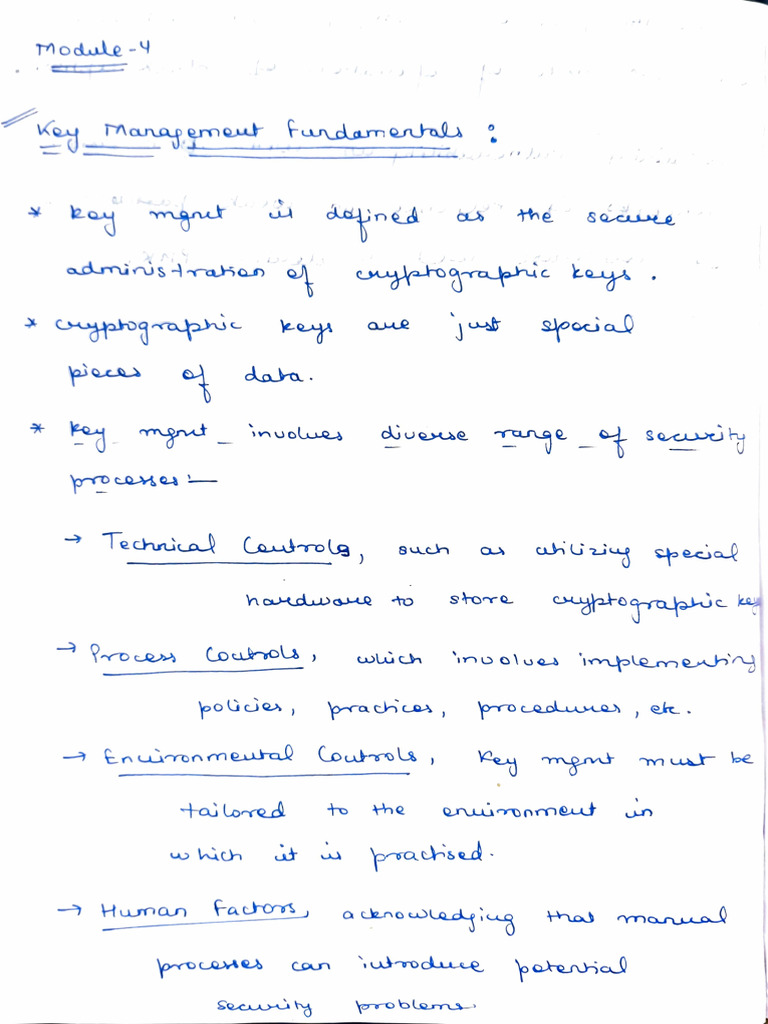 Module-4
Key Management Fundamentals :
* Key mgmt is defined as the secure
administration of cryptographic keys.
* cryptographic keys are just special
pieces of data.
* Key mgmt involves diverse range of security
processes:—
→ Technical Controls, such as utilizing special
hardware to store cryptographic key
→ Process Controls, which involves implementing
policies, practices, procedures, etc.
→ Environmental Controls, Key mgmt must be
tailored to the environment in
which it is practised.
→ Human Factors, acknowledging that manual
processes can introduce potential
security problems.